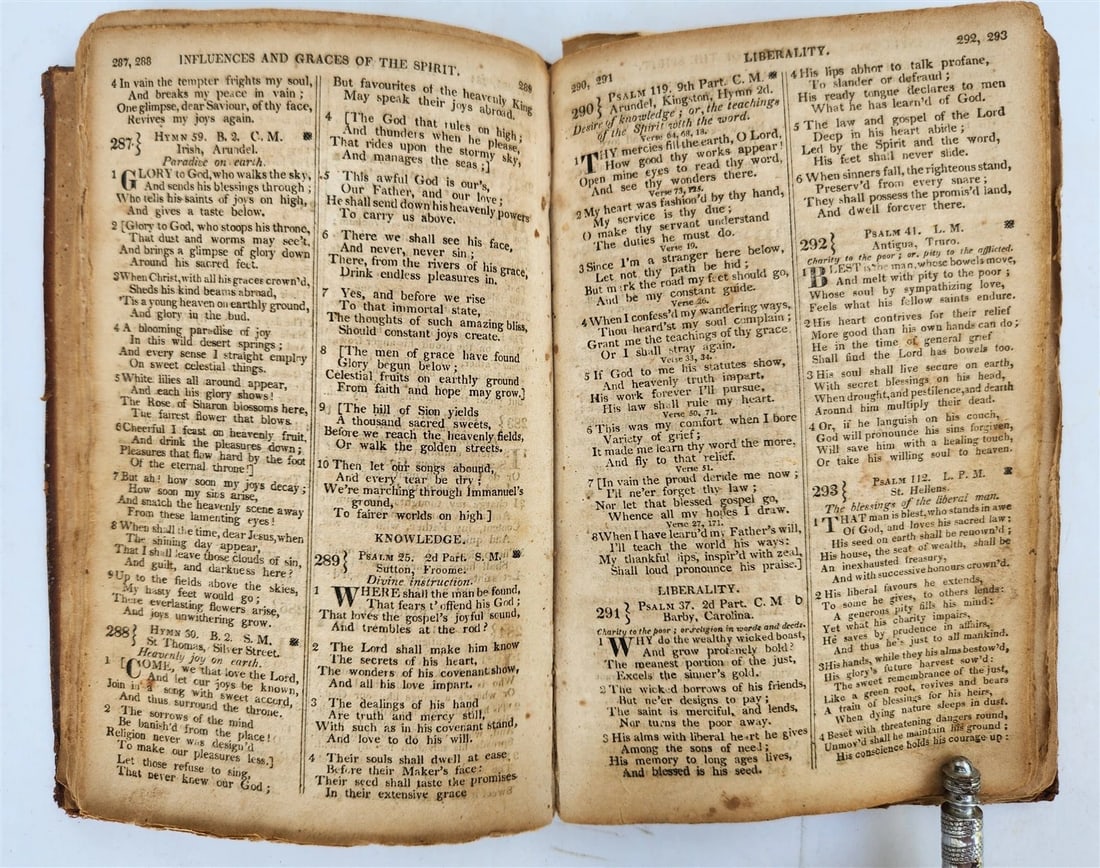 287, 288 INFLUENCES AND GRACES OF THE SPIRIT. 289
4 In vain the tempter frights my soul,
And breaks my peace in vain;
One glimpse, dear Saviour, of thy face,
Revives my joys again.
287 } HYMN 59. B. 2. C. M. *
Irish, Arundel.
Paradise on earth.
1 GLORY to God, who walks the sky,
And sends his blessings through;
Who tells his saints of joys on high,
And gives a taste below.
2 [Glory to God, who stoops his throne,
That dust and worms may see't,
And brings a glimpse of glory down
Around his sacred feet.
3 When Christ, with all his graces crown'd,
Sheds his kind beams abroad,
'Tis a young heaven on earthly ground,
And glory in the bud.
4 A blooming paradise of joy
In this wild desert springs;
And every sense I straight employ
On sweet celestial things.
5 White lilies all around appear,
And each his glory shows!
The Rose of Sharon blossoms here,
The fairest flower that blows.
6 Cheerful I feast on heavenly fruit,
And drink the pleasures down;
Pleasures that flaw hard by the foot
Of the eternal throne!]
7 But ah! how soon my joys decay;
How soon my sins arise,
And snatch the heavenly scene away
From these lamenting eyes!
8 When shall the time, dear Jesus, when
The shining day appear,
That I shall leave those clouds of sin,
And guilt, and darkness here?
9 Up to the fields above the skies,
My hasty feet would go;
There everlasting flowers arise,
And joys unwithering grow.
288 } HYMN 30. B. 2. S. M. *
St. Thomas, Silver Street.
Heavenly joy on earth.
1 [COME, we that love the Lord,
And let our joys be known,
Join in a song with sweet accord,
And thus surround the throne.
2 The sorrows of the mind
Be banish'd from the place!
Religion never was design'd
To make our pleasures less.]
Let those refuse to sing,
That never knew our God;
But favourites of the heavenly King
May speak their joys abroad.
4 [The God that rules on high;
And thunders when he please,
That rides upon the stormy sky,
And manages the seas;]
5 This awful God is our's,
Our Father, and our love;
He shall send down his heavenly powers
To carry us above.
6 There we shall see his face,
And never, never sin;
There, from the rivers of his grace,
Drink endless pleasures in.
7 Yes, and before we rise
To that immortal state,
The thoughts of such amazing bliss,
Should constant joys create.
8 [The men of grace have found
Glory begun below;
Celestial fruits on earthly ground
From faith and hope may grow.]
9 [The hill of Sion yields
A thousand sacred sweets,
Before we reach the heavenly fields,
Or walk the golden streets.
10 Then let our songs abound,
And every tear be dry;
We're marching through Immanuel's
ground,
To fairer worlds on high.]
KNOWLEDGE.
289 } PSALM 25. 2d Part. S. M. *
Sutton, Froome.
Divine instruction.
1 WHERE shall the man be found,
That fears t' offend his God;
That loves the gospel's joyful sound,
And trembles at the rod?
2 The Lord shall make him know
The secrets of his heart,
The wonders of his covenant show,
And all his love impart.
3 The dealings of his hand
Are truth and mercy still,
With such as in his covenant stand,
And love to do his will.
4 Their souls shall dwell at ease
Before their Maker's face:
Their seed shall taste the promises
In their extensive grace
290, 291 LIBERALITY. 292, 293
290 } PSALM 119. 9th Part. C. M. *
Arundel, Kingston, Hymn 2d.
Desire of knowledge; or, the teachings
of the Spirit with the word.
Verse 64, 68, 18.
1 THY mercies fill the earth, O Lord,
How good thy works appear!
Open mine eyes to read thy word,
And see thy wonders there.
Verse 73, 125.
2 My heart was fashion'd by thy hand,
My service is thy due;
O make thy servant understand
The duties he must do.
Verse 19.
3 Since I'm a stranger here below,
Let not thy path be hid;
But mark the road my feet should go,
And be my constant guide.
Verse 26.
4 When I confess'd my wandering ways,
Thou heard'st my soul complain;
Grant me the teachings of thy grace
Or I shall stray again.
Verse 33, 34.
5 If God to me his statutes show,
And heavenly truth impart,
His work forever I'll pursue,
His law shall rule my heart.
Verse 50, 71.
6 This was my comfort when I bore
Variety of grief;
It made me learn thy word the more,
And fly to that relief.
Verse 51.
7 [In vain the proud deride me now;
I'll ne'er forget thy law;
Nor let that blessed gospel go,
Whence all my hopes I draw.
Verse 27, 171.
8 When I have learn'd my Father's will,
I'll teach the world his ways:
My thankful lips, inspir'd with zeal,
Shall loud pronounce his praise.]
LIBERALITY.
291 } PSALM 37. 2d Part. C. M b
Barby, Carolina.
Charity to the poor; or religion in words and deeds.
1 WHY do the wealthy wicked boast,
And grow profanely bold?
The meanest portion of the just,
Excels the sinner's gold.
2 The wicked borrows of his friends,
But ne'er designs to pay;
The saint is merciful, and lends,
Nor turns the poor away.
3 His alms with liberal heart he gives
Among the sons of need;
His memory to long ages lives,
And blessed is his seed.
4 His lips abhor to talk profane,
To slander or defraud;
His ready tongue declares to men
What he has learn'd of God.
5 The law and gospel of the Lord
Deep in his heart abide;
Led by the Spirit and the word,
His feet shall never slide.
6 When sinners fall, the righteous stand,
Preserv'd from every snare;
They shall possess the promis'd land,
And dwell forever there.
292 } PSALM 41. L. M. *
Antigua, Truro.
Charity to the poor; or, pity to the afflicted.
1 BLEST is the man, whose bowels move,
And melt with pity to the poor;
Whose soul by sympathizing love,
Feels what his fellow saints endure.
2 His heart contrives for their relief
More good than his own hands can do;
He in the time of general grief
Shall find the Lord has bowels too.
3 His soul shall live secure on earth,
With secret blessings on his head,
When drought, and pestilence, and dearth
Around him multiply their dead.
4 Or, if he languish on his couch,
God will pronounce his sins forgiven,
Will save him with a healing touch,
Or take his willing soul to heaven.
293 } PSALM 112. L. P. M. *
St. Hellens.
The blessings of the liberal man.
1 THAT man is blest, who stands in awe
Of God, and loves his sacred law;
His seed on earth shall be renown'd;
His house, the seat of wealth, shall be
An inexhausted treasury,
And with successive honours crown'd.
2 His liberal favours he extends,
To some he gives, to others lends:
A generous pity fills his mind:
Yet what his charity impairs,
He saves by prudence in affairs,
And thus he's just to all mankind.
3 His hands, while they his alms bestow'd,
His glory's future harvest sow'd:
The sweet remembrance of the just,
Like a green root, revives and bears
A train of blessings for his heirs,
When dying nature sleeps in dust.
4 Beset with threatening dangers round,
Unmov'd shall he maintain his ground;
His conscience holds his courage up: